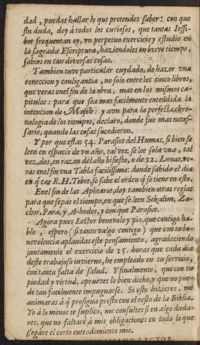 dad, puedas hallar lo que pretendes saber: con que
sin duda, doy à todos los curiosos, que tantas
frequentam oy, un perpetuo exercicio y estudio en
la sagrada Escriptura, haziendoles en breve tiempo,
sabios en tan diversas cosas.
Tambien tuve particular cuydado, de hazer una
coneccion y contiguaçion, no solo entre los cinco libros,
que veras en el fin de la obra, mas en los mismos ca-
pitulos: para que sea mas facilmente entendida la
intencion de Moseh: y aun para la perfecta chro-
nologia de los tiempos, declaro, donde fue mas neces-
sario, quando las cosas sucedieron.
Y por que estas 54. Parasiot del Humas, si bien se
leen en espacio de un año, tal vez se lee sola una, tal
vez, dos, en razon del año bisiesto, o de 12. Lunas, ve-
ras en el fin una Tabla facilissima: donde sabido el dia
en que cae R.H. Tebet, se sabe el orden que se tiene en ellas.
En el fin de las Aphtarot, doy tambien otras reglas
para que sepas el tiempo, en que se leen Sekalim, Za-
chor, Para, y A-hodes, y con que Parasha.
Agora pues Lector benevolo y pio, que contigo ha-
blo, espero (si tanto valgo contigo) que con tu be-
nevolencia aplaudas este pensamiento, agradeciendo
juntamente el exercicio de 15. horas que cada dia
deste trabajoso invierno, he empleado en su servicio,
con tanta falta de salud. Y finalmente, que con tu
piedad y virtud, apruebes lo bien dicho, y que no pue-
de tan facilmente impugnarse. Si esto hizieres, me
animaras à que prosiga presto con el resto de la Biblia.
Yo à lo menos te suplico, me consultes si en algo duda-
res, que no faltaré à mis obligaciones en todo lo que
llegare el corto entendimiento mio.